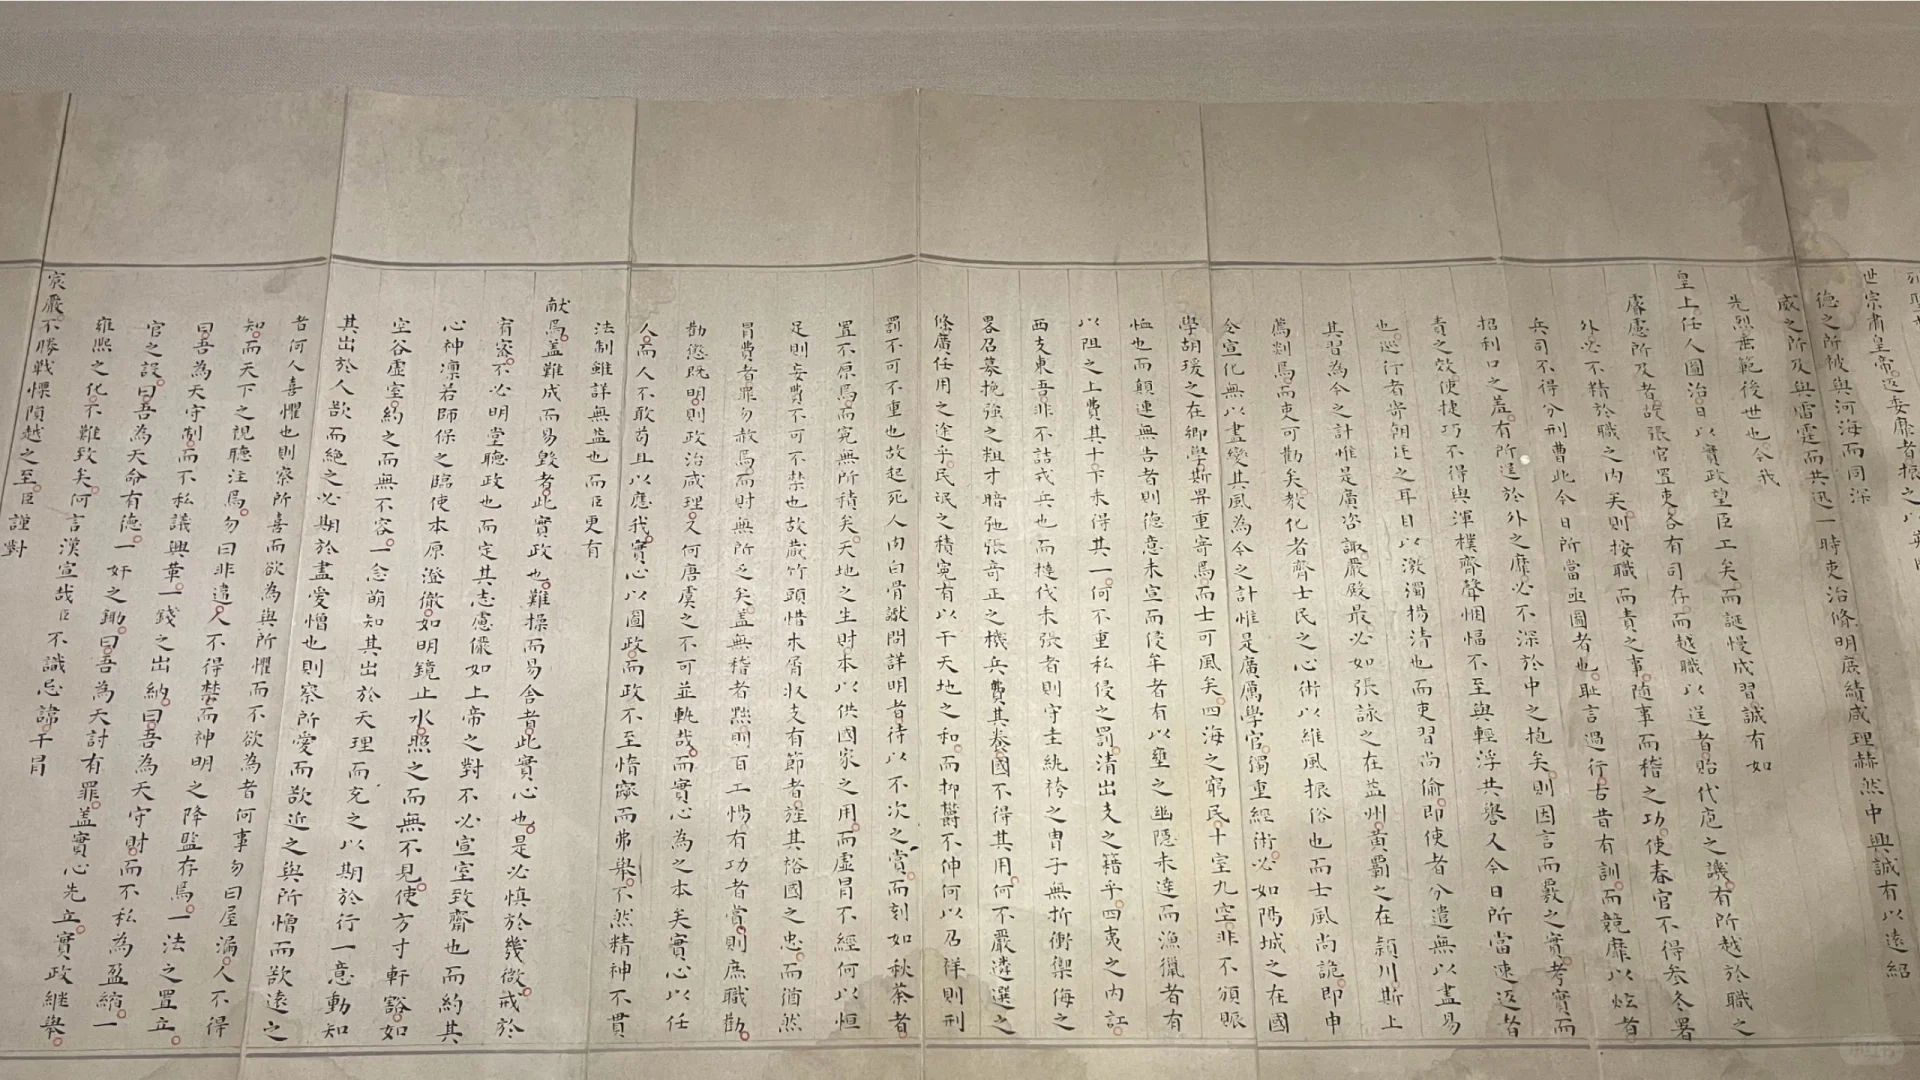 世宗肅皇帝返委靡者振之
德之所被與河海而同深
威之所及與雷霆而共迅一時吏治修明庶績咸理赫然中興誠有以遠紹
先烈垂範後世也今我
皇上任人圖治日以實政望臣工矣而誕慢成習誠有如
睿慮所及者故張官置吏各有司存而越職以逞者貽代庖之譏有所越於職之
外必不精於職之內矣則按職而責之事隨事而稽之功使春官不得參冬署
兵司不得分刑曹此今日所當亟圖者也恥言過行古昔有訓而競靡以炫者
招利口之羞有所逞於外之靡必不深於中之抱矣則因言而覈之實考實而
責之效使捷巧不得與渾樸齊聲悃愊不至與輕浮共譽又今日所當速返者
也巡行者寄朝廷之耳目以激濁揚清也而吏習尚偷即使者分遣無以盡易
其習為今之計惟是廣咨諏嚴殿最必如張詠之在益州黃霸之在潁川斯上
薦剡焉而吏可勸矣教化者齊士民之心術以維風振俗也而士風尚詭即申
令宣化無以盡變其風為今之計惟是廣厲學官獨重經術必如陽城之在國
學胡瑗之在鄉學斯畀重寄焉而士可風矣四海之窮民十室九空非不頒賑
恤也而顛連無告者則德意未宣而侵牟者有以壅之幽隱未達而漁獵者有
以阻之上費其十下未得其一何不重私侵之罰清出支之籍乎四夷之內訌
西支東吾非不詰戎兵也而撻伐未張者則守圭紈袴之胄子無折衝禦侮之
畧召募挽強之粗才暗弛張奇正之機兵費其養國不得其用何不嚴遴選之
條廣任用之途乎民氓之積冤有以干天地之和而抑欝不伸何以召祥則刑
罰不可不重也故起死人肉白骨讞問詳明者待以不次之賞而刻如秋荼者
置不原焉而冤無所積矣天地之生財本以供國家之用而虛冒不經何以恒
足則妄費不可不禁也故藏竹頭惜木屑收支有節者旌其裕國之忠而猶然
冒費者罪勿赦焉而財無所乏矣盖無稽者黜則百工惕有功者賞則庶職勸
勸懲既明則政治咸理又何唐虞之不可並軌哉而實心為之本矣實心以任
人而人不敢苟且以應我實心以圖政而政不至惰窳而弗舉不然精神不貫
法制雖詳無益也而臣更有
献焉盖難成而易毀者此實政也難操而易舍者此實心也是必慎於幾微戒於
宥密不必明堂聽政也而定其志慮儼如上帝之對不必宣室致齋也而約其
心神凛若師保之臨使本原澄徹如明鏡止水照之而無不見使方寸軒豁如
空谷虛室約之而無不容一念萌知其出於天理而充之以期於行一意動知
其出於人欲而絕之必期於盡愛憎也則察所愛而欲近之與所憎而欲遠之
者何人喜懼也則察所喜而欲為與所懼而不欲為者何事勿曰屋漏人不得
知而天下之視聽注焉勿曰非違人不得禁而神明之降監存焉一法之置立
曰吾為天守制而不私議興革一錢之出納曰吾為天守財而不私為盈縮一
官之設曰吾為天命有德一奸之鋤曰吾為天討有罪盖實心先立實政繼舉
雍熙之化不難致矣何言漢宣哉臣不識忌諱干冒
宸嚴不勝戰慄隕越之至臣謹對